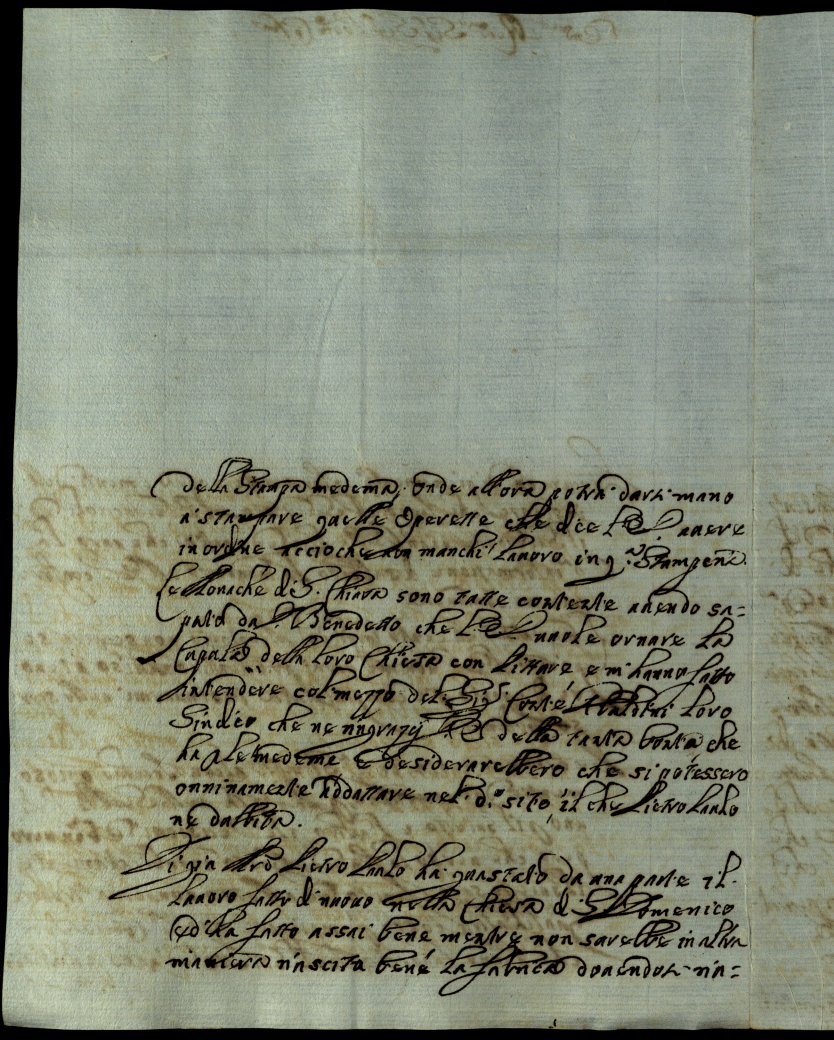 della Stampa medema, onde allora potrà darsi mano
a stampare quelle Operette che dice V.E. avere
in ordine acciochè non manchi lavoro in q.a Stamperia.
Le Monache di S. Chiara sono tutte contente avendo sa=
puto da Benedetto che V.E. vuole ornare la
Cupola della loro Chiesa con Pitture e m'hanno fatto
intendere col mezzo del Sig.r Conte Ubaldini loro
Sindico che ne ringrazij V.E. della tanta bontà che
ha p le medeme e desiderarebbero che si potessero
onninamente addattare nel d.o sito il che Pietro Paolo
ne dubita.
Di già Pietro Paolo ha guastato da una parte il
lavoro fatto di nuovo nella Chiesa di S. Domenico
ed ha fatto assai bene mentre non sarebbe in altra
maniera riuscita bene la fabrica dovendosi ria=